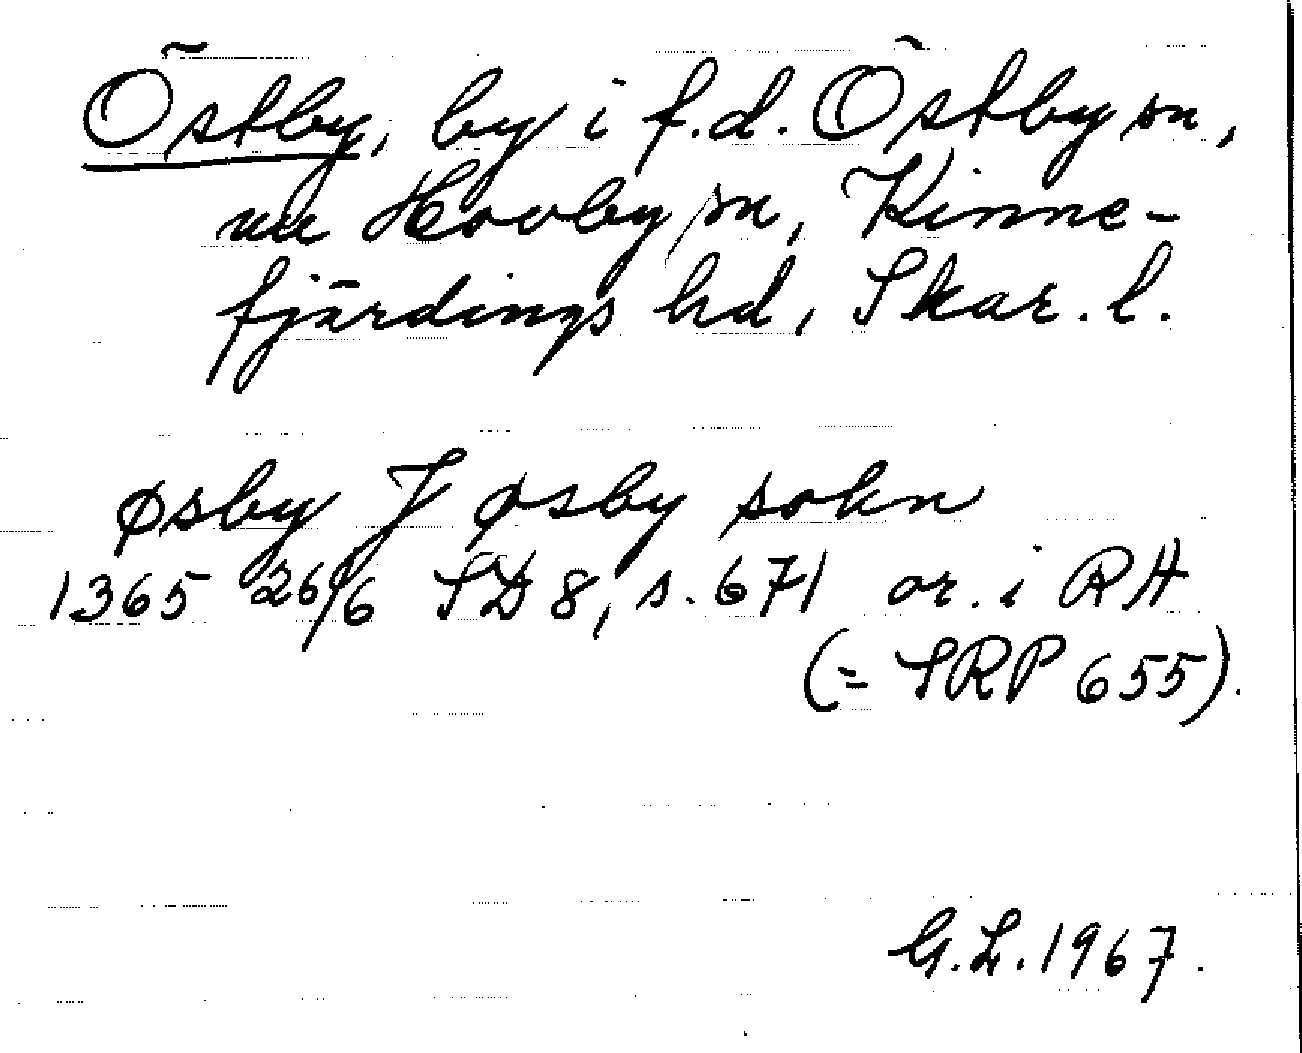 Östby, by i f.d. Östby sn,
nu Hovby sn, Kinne-
fjärdings hd, Skar. l.
øsby J øsby sokn
1365 26/6 SD 8, s. 671 or. i RA
(= SRP 655).
G.L. 1967.